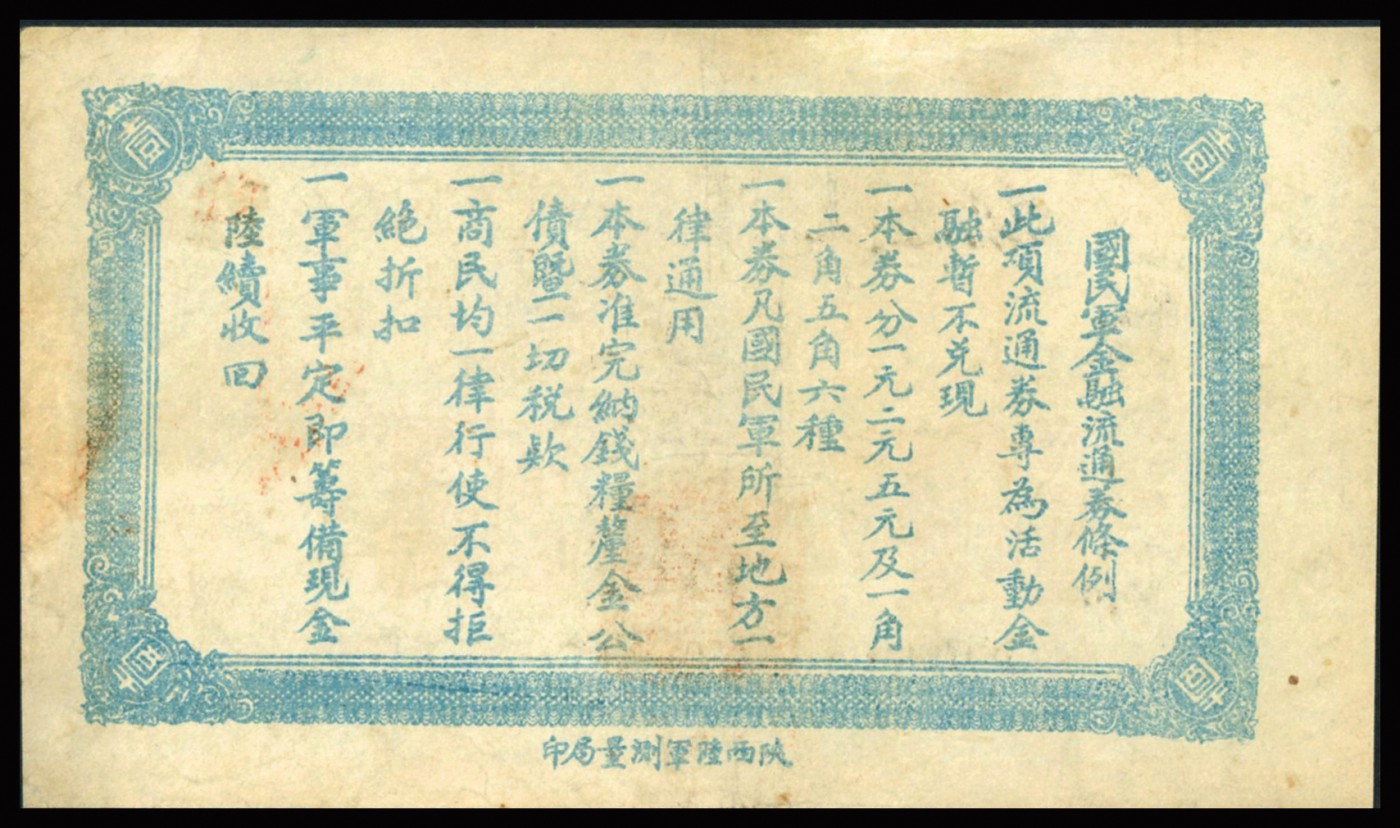 國民軍金融流通券條例
一此項流通券專為活動金
融暫不兌現
一本券分一元二元五元及一角
二角五角六種
一本券凡國民軍所至地方一
律通用
一本券准完納錢糧釐金公
債暨一切稅欵
一商民均一律行使不得拒
絕折扣
一軍事平定即籌備現金
陸續收回
壹
壹
壹
壹
陝西陸軍測量局印